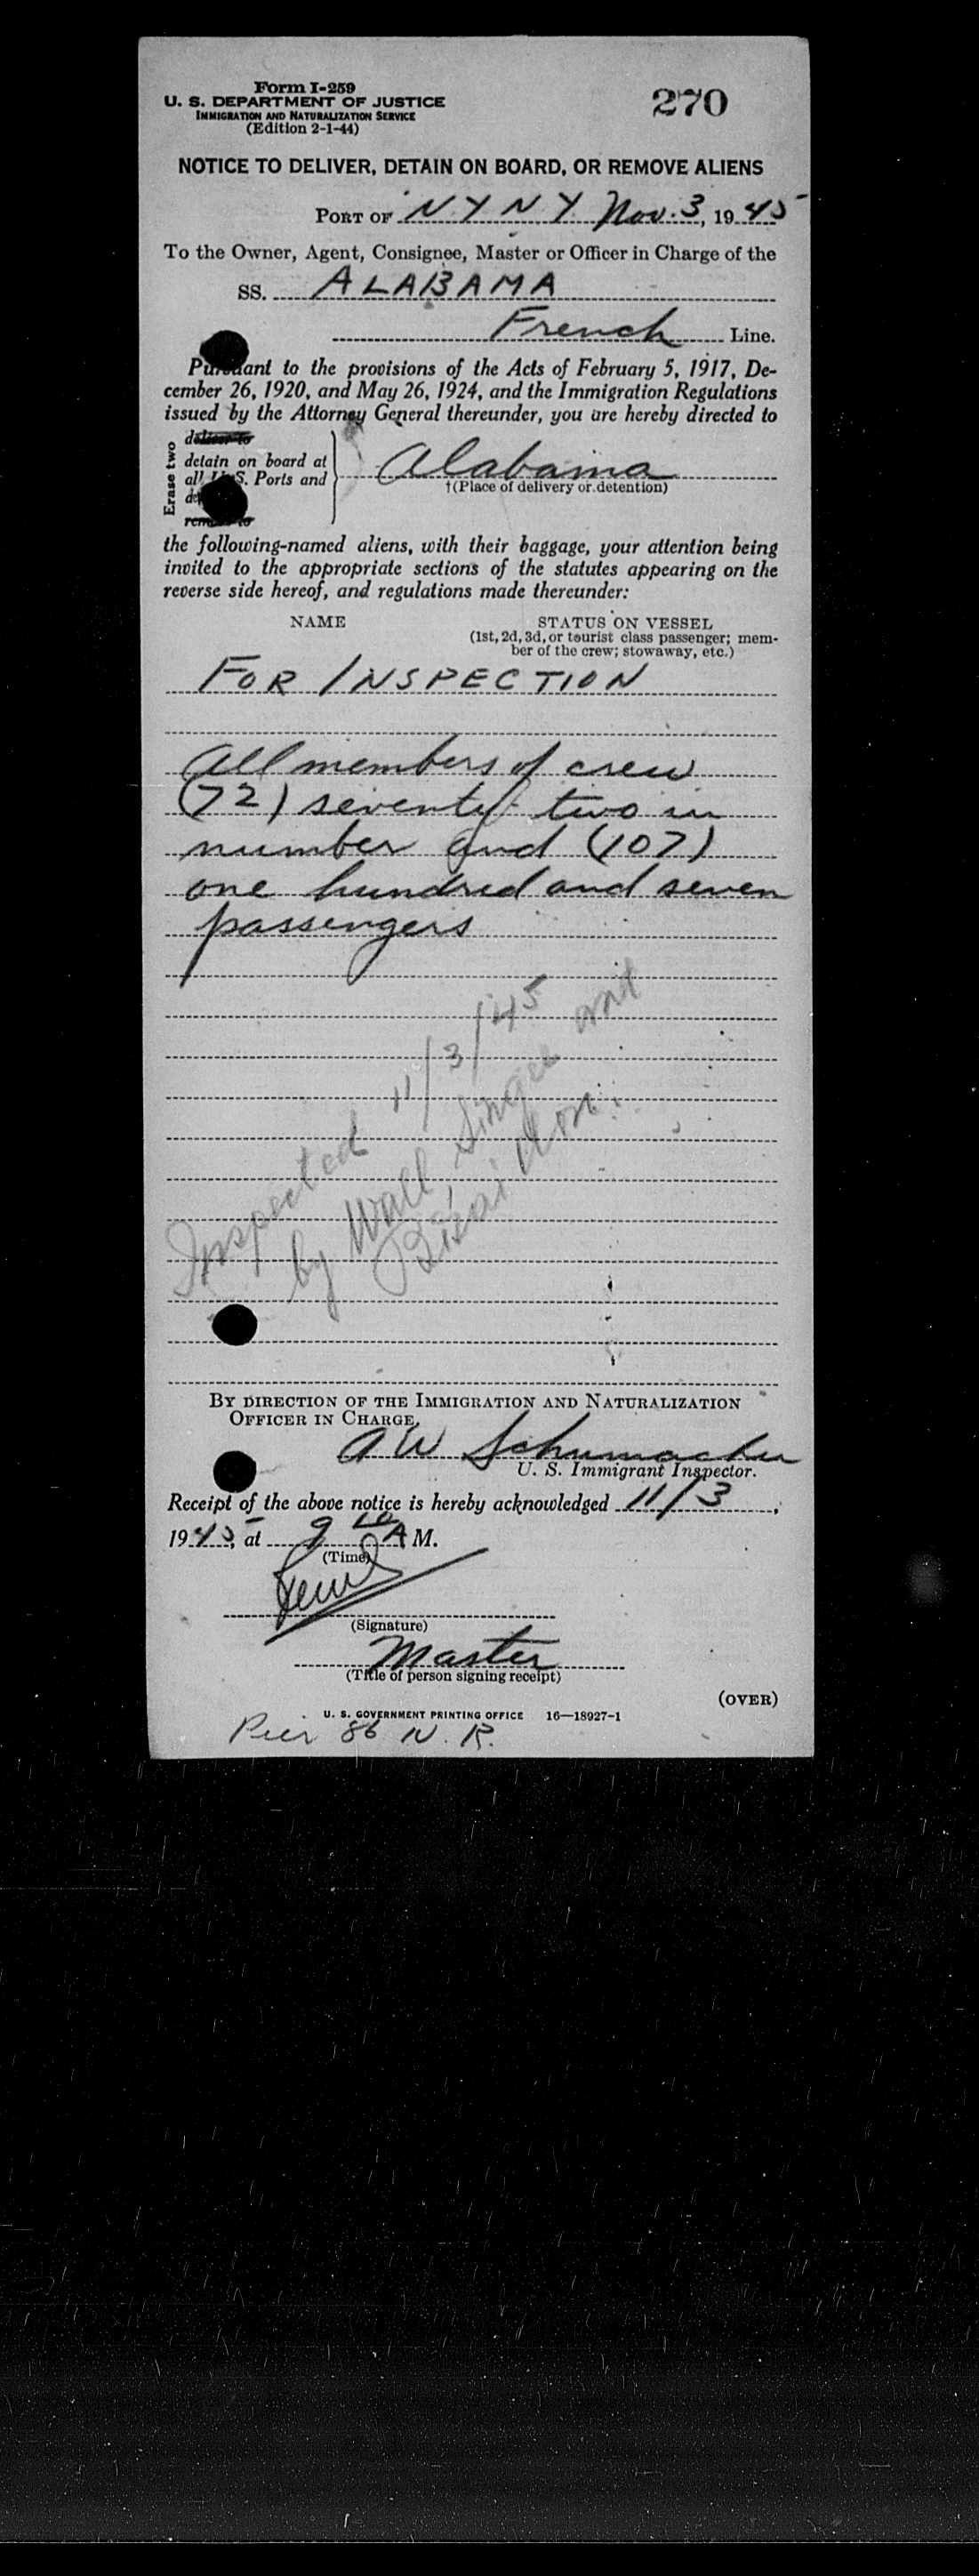 Form I-259
U. S. DEPARTMENT OF JUSTICE
IMMIGRATION AND NATURALIZATION SERVICE
(Edition 2-1-44)
270
NOTICE TO DELIVER, DETAIN ON BOARD, OR REMOVE ALIENS
PORT OF N Y N Y Nov. 3, 1945
To the Owner, Agent, Consignee, Master or Officer in Charge of the
SS. ALABAMA
French Line.
Pursuant to the provisions of the Acts of February 5, 1917, De-
cember 26, 1920, and May 26, 1924, and the Immigration Regulations
issued by the Attorney General thereunder, you are hereby directed to
Erase two
deliver to
detain on board at
all U. S. Ports and
remove to
Alabama
†(Place of delivery or detention)
the following-named aliens, with their baggage, your attention being
invited to the appropriate sections of the statutes appearing on the
reverse side hereof, and regulations made thereunder:
NAME
STATUS ON VESSEL
(1st, 2d, 3d, or tourist class passenger; mem-
ber of the crew; stowaway, etc.)
FOR INSPECTION
All members of crew
(72) seventy two in
number and (107)
one hundred and seven
passengers
Inspected 11/3/45
by Wall, Singer and
BY DIRECTION OF THE IMMIGRATION AND NATURALIZATION
OFFICER IN CHARGE,
A W Schumacher
U. S. Immigrant Inspector.
Receipt of the above notice is hereby acknowledged 11/3,
1945, at 9 A M.
(Time)
(Signature)
Master
(Title of person signing receipt)
(OVER)
U. S. GOVERNMENT PRINTING OFFICE 16—18927-1
Pier 86 N. R.